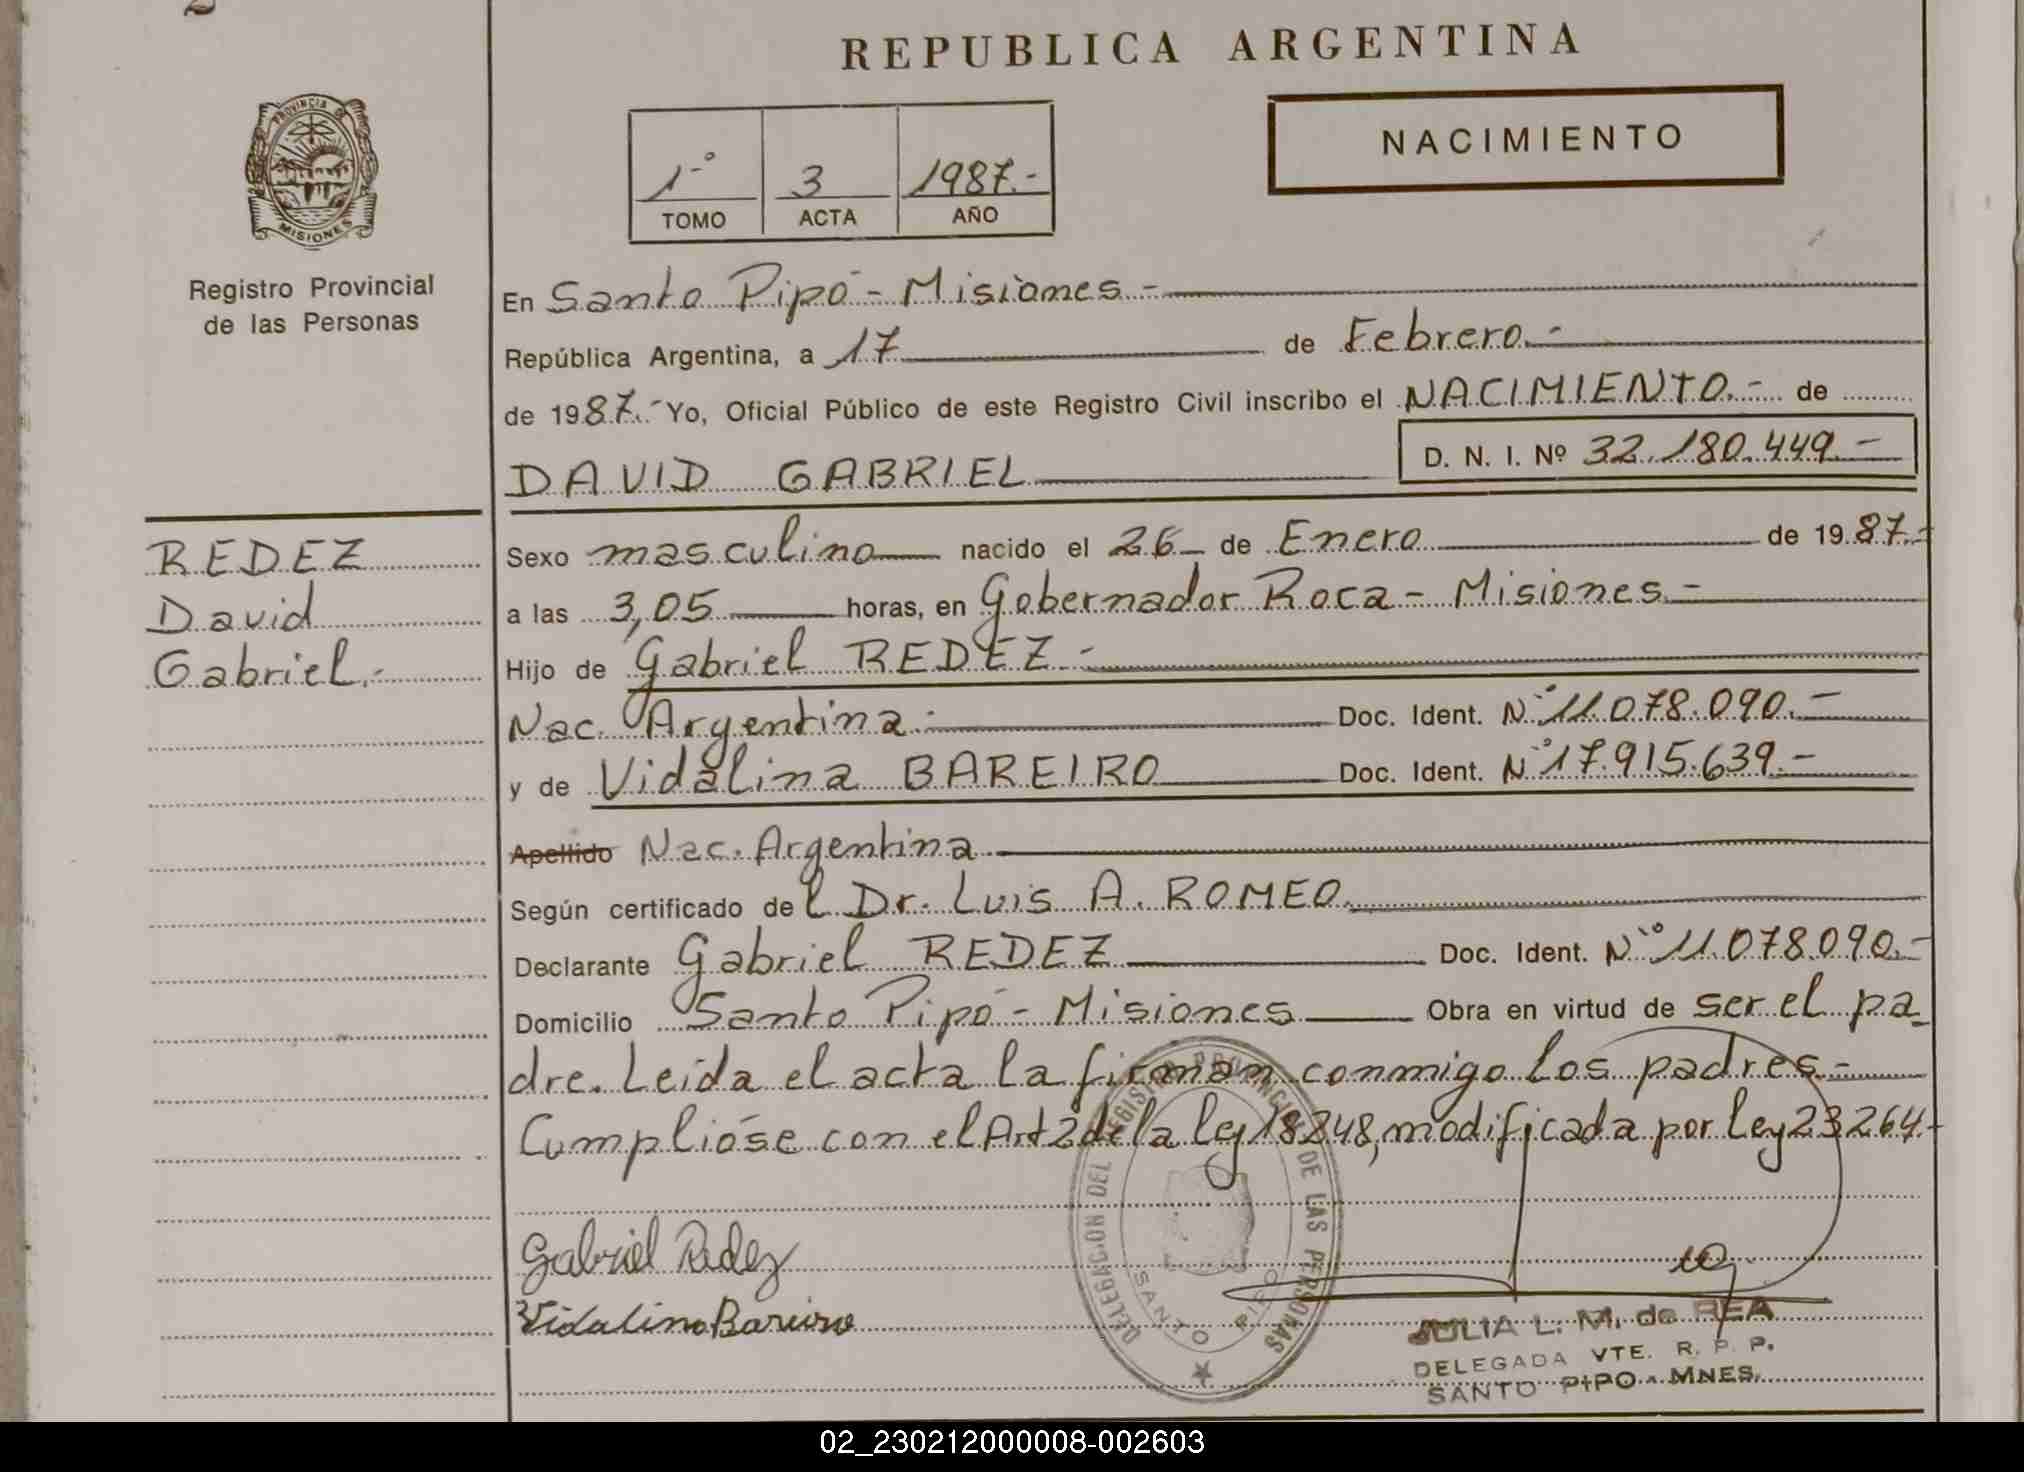 REPUBLICA ARGENTINA
PROVINCIA DE
MISIONES
Registro Provincial
de las Personas
1º 3 1987.-
TOMO ACTA AÑO
NACIMIENTO
En Santo Pipó - Misiones.-
República Argentina, a 17 de Febrero.-
de 1987.- Yo, Oficial Público de este Registro Civil inscribo el NACIMIENTO.- de
DAVID GABRIEL D. N. I. Nº 32.180.449.-
REDEZ
David
Gabriel.-
Sexo masculino nacido el 26 de Enero de 1987.-
a las 3,05 horas, en Gobernador Roca - Misiones.-
Hijo de Gabriel REDEZ.-
Nac. Argentina.- Doc. Ident. Nº 11.078.090.-
y de Vidalina BAREIRO Doc. Ident. Nº 17.915.639.-
Apellido Nac. Argentina
Según certificado del Dr. Luis A. ROMEO.
Declarante Gabriel REDEZ Doc. Ident. Nº 11.078.090.-
Domicilio Santo Pipó - Misiones Obra en virtud de ser el pa_
dre. Leída el acta la firman conmigo los padres.-
Cumplióse con el Art 2 de la ley 18248, modificada por ley 23264.-
Gabriel Redez
Vidalina Bareiro
DELEGACION DEL REGISTRO PROVINCIAL DE LAS PERSONAS
SANTO PIPO
JULIA L. M. de REA
DELEGADA VTE. R. P. P.
SANTO PIPO - MNES.
02_230212000008-002603